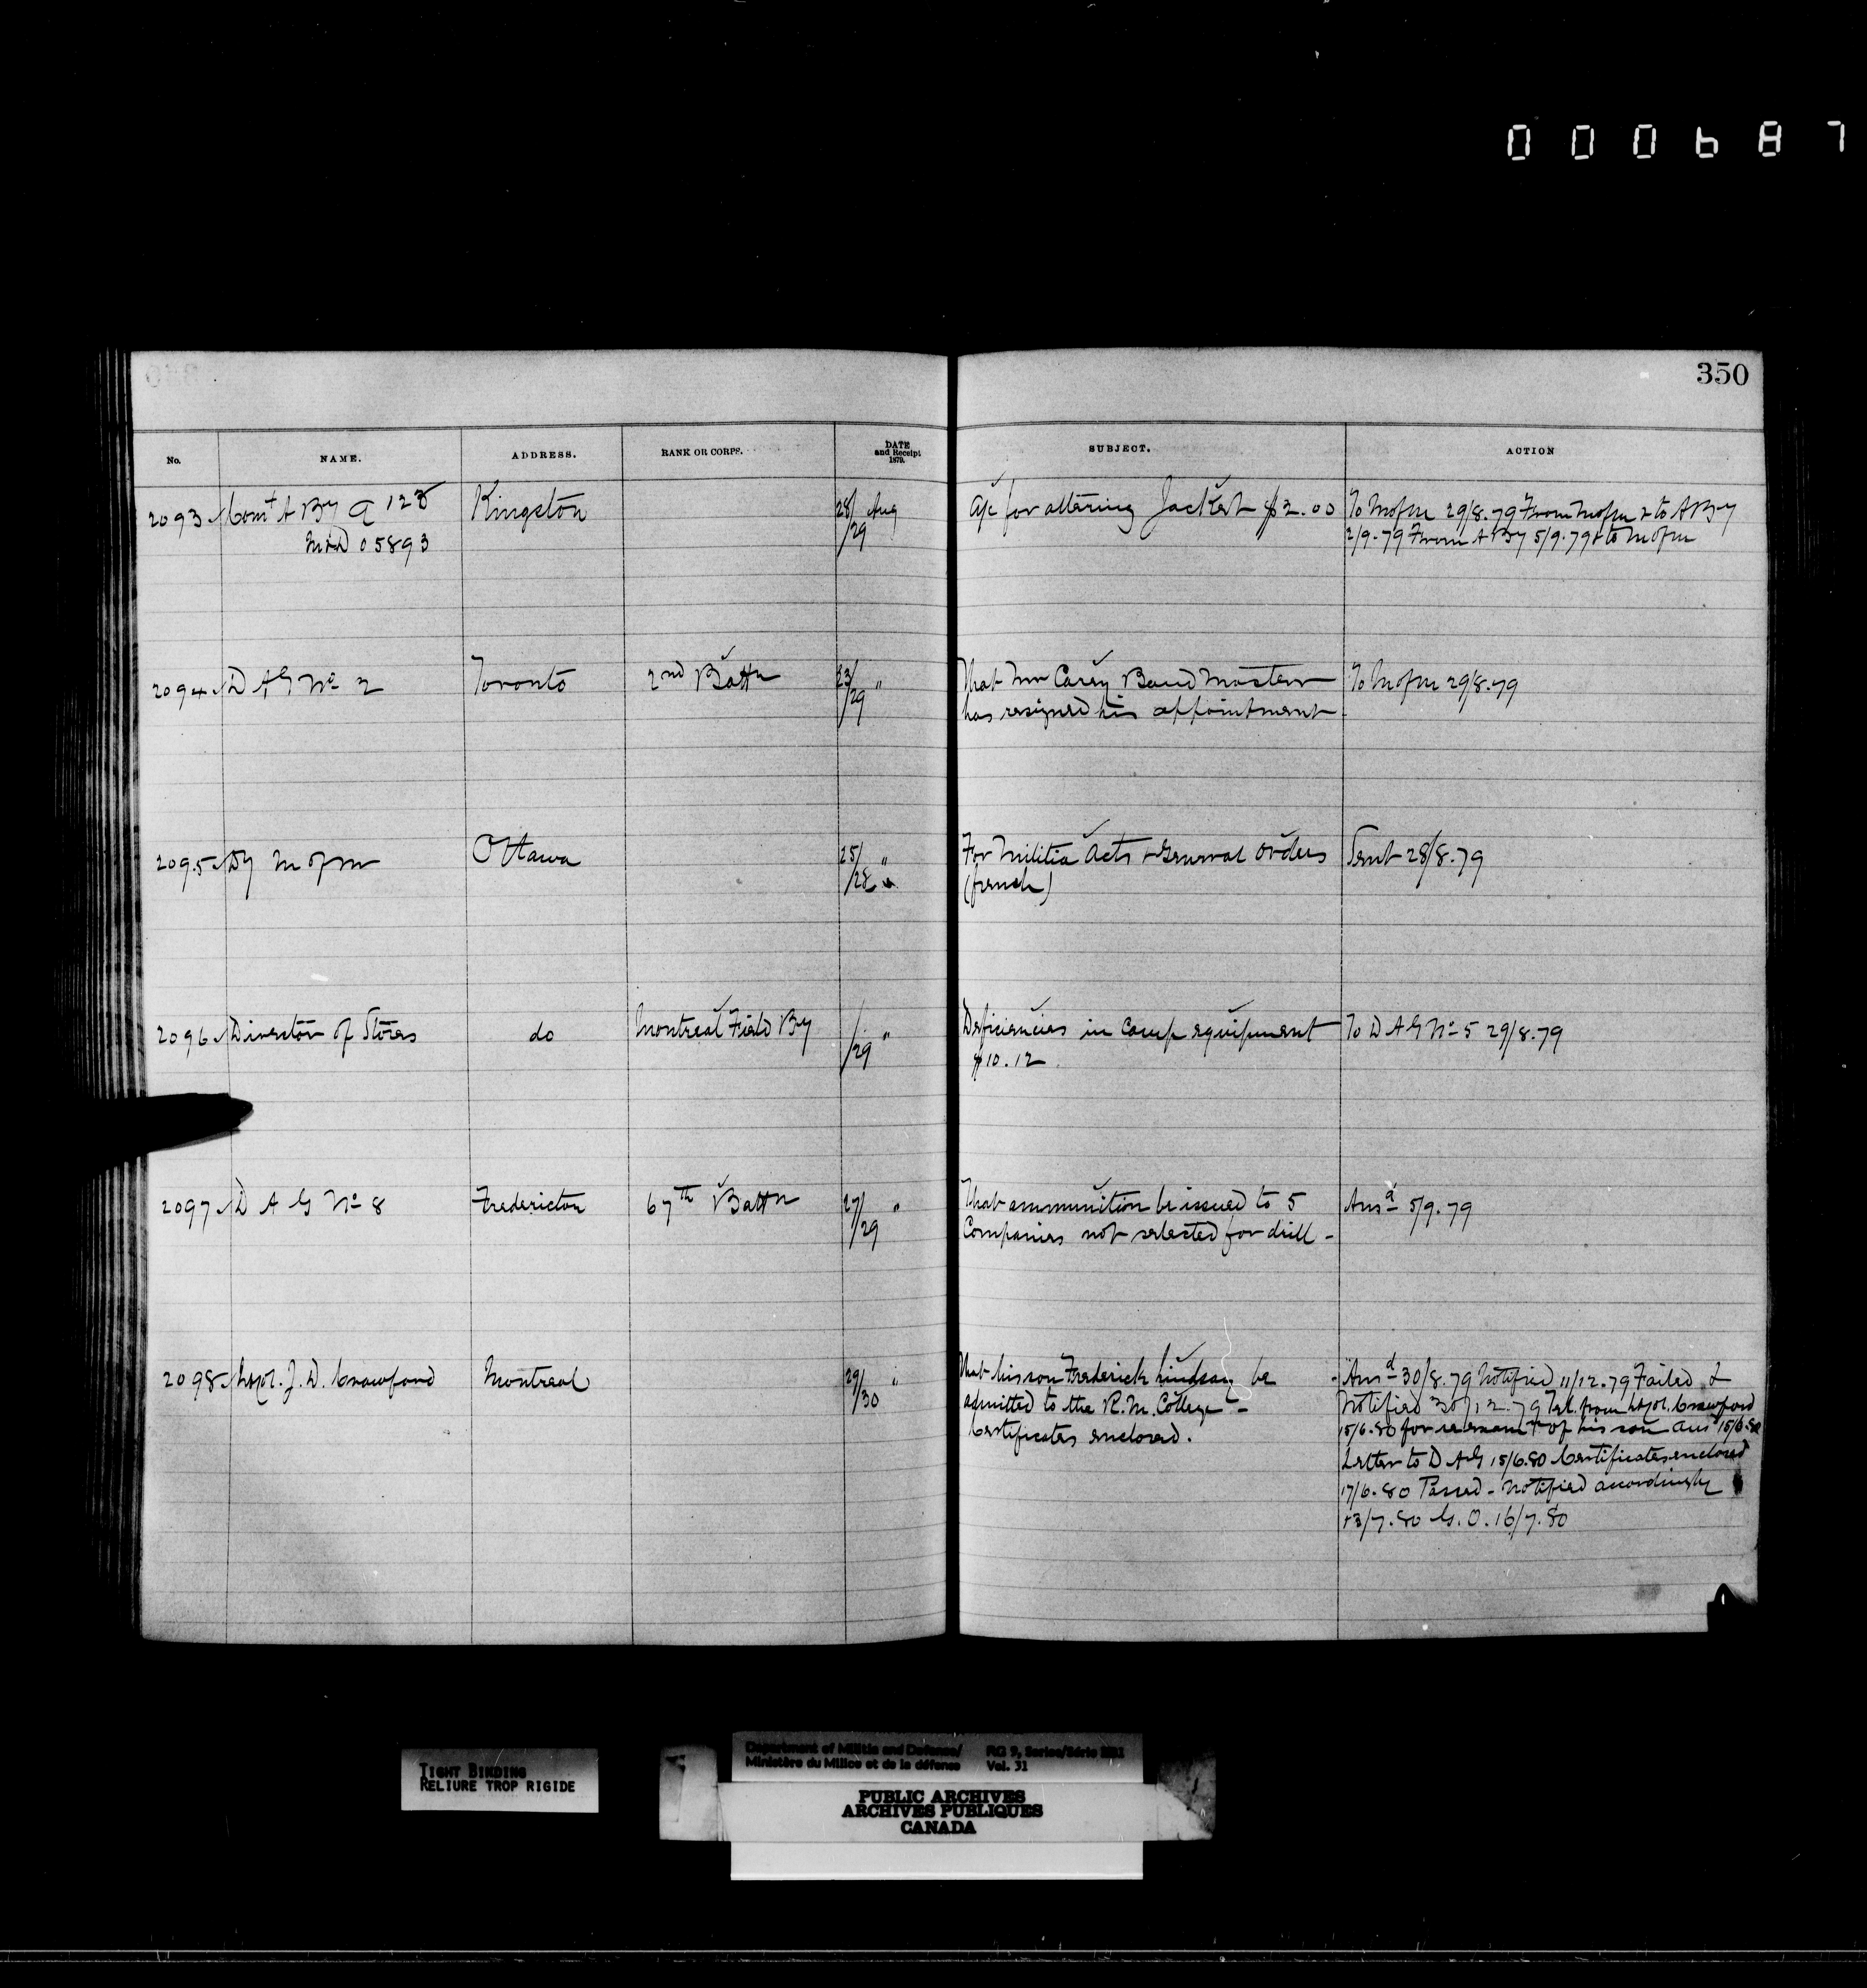 000687
350
No. NAME. ADDRESS. RANK OR CORPS. DATE and Receipt 1879. SUBJECT. ACTION
2093 Comt A By Q 125 Kingston 28/29 Aug A/c for altering Jacket $2.00 To M of M 29/8.79 From M of M & to A By
M&D 05893 2/9.79 From A By 5/9.79 & to M of M
2094 D A G No 2 Toronto 2nd Battn 23/29 " That Mr Carey Band Master To M of M 29/8.79
has resigned his appointment -
2095 Dy M of M Ottawa 25/28 " For Militia Acts & General Orders Sent 28/8.79
(french)
2096 Director of Stores do Montreal Field By /29 " Deficiencies in Camp equipment To D A G No 5 29/8.79
$10.12
2097 D A G No 8 Fredericton 67th Battn 27/29 " That ammunition be issued to 5 Ansd 5/9.79
Companies not selected for drill -
2098 Lt Col. J. D. Crawford Montreal 29/30 " That his son Frederick Lindsay be - Ansd 30/8.79 Notified 11/12.79 Failed &
admitted to the R. M. College - Notified 30/12.79 Tel. from Lt Col. Crawford
Certificates enclosed. 15/6.80 for re examt of his son Ansd 15/6.80
Letter to D A G 15/6.80 Certificates enclosed
17/6.80 Passed - Notified accordingly
13/7.80 G. O. 16/7.80
TIGHT BINDING
RELIURE TROP RIGIDE
Department of Militia and Defence/ RG 9, Series/Série
Ministère du Milice et de la défense Vol. 31
PUBLIC ARCHIVES
ARCHIVES PUBLIQUES
CANADA